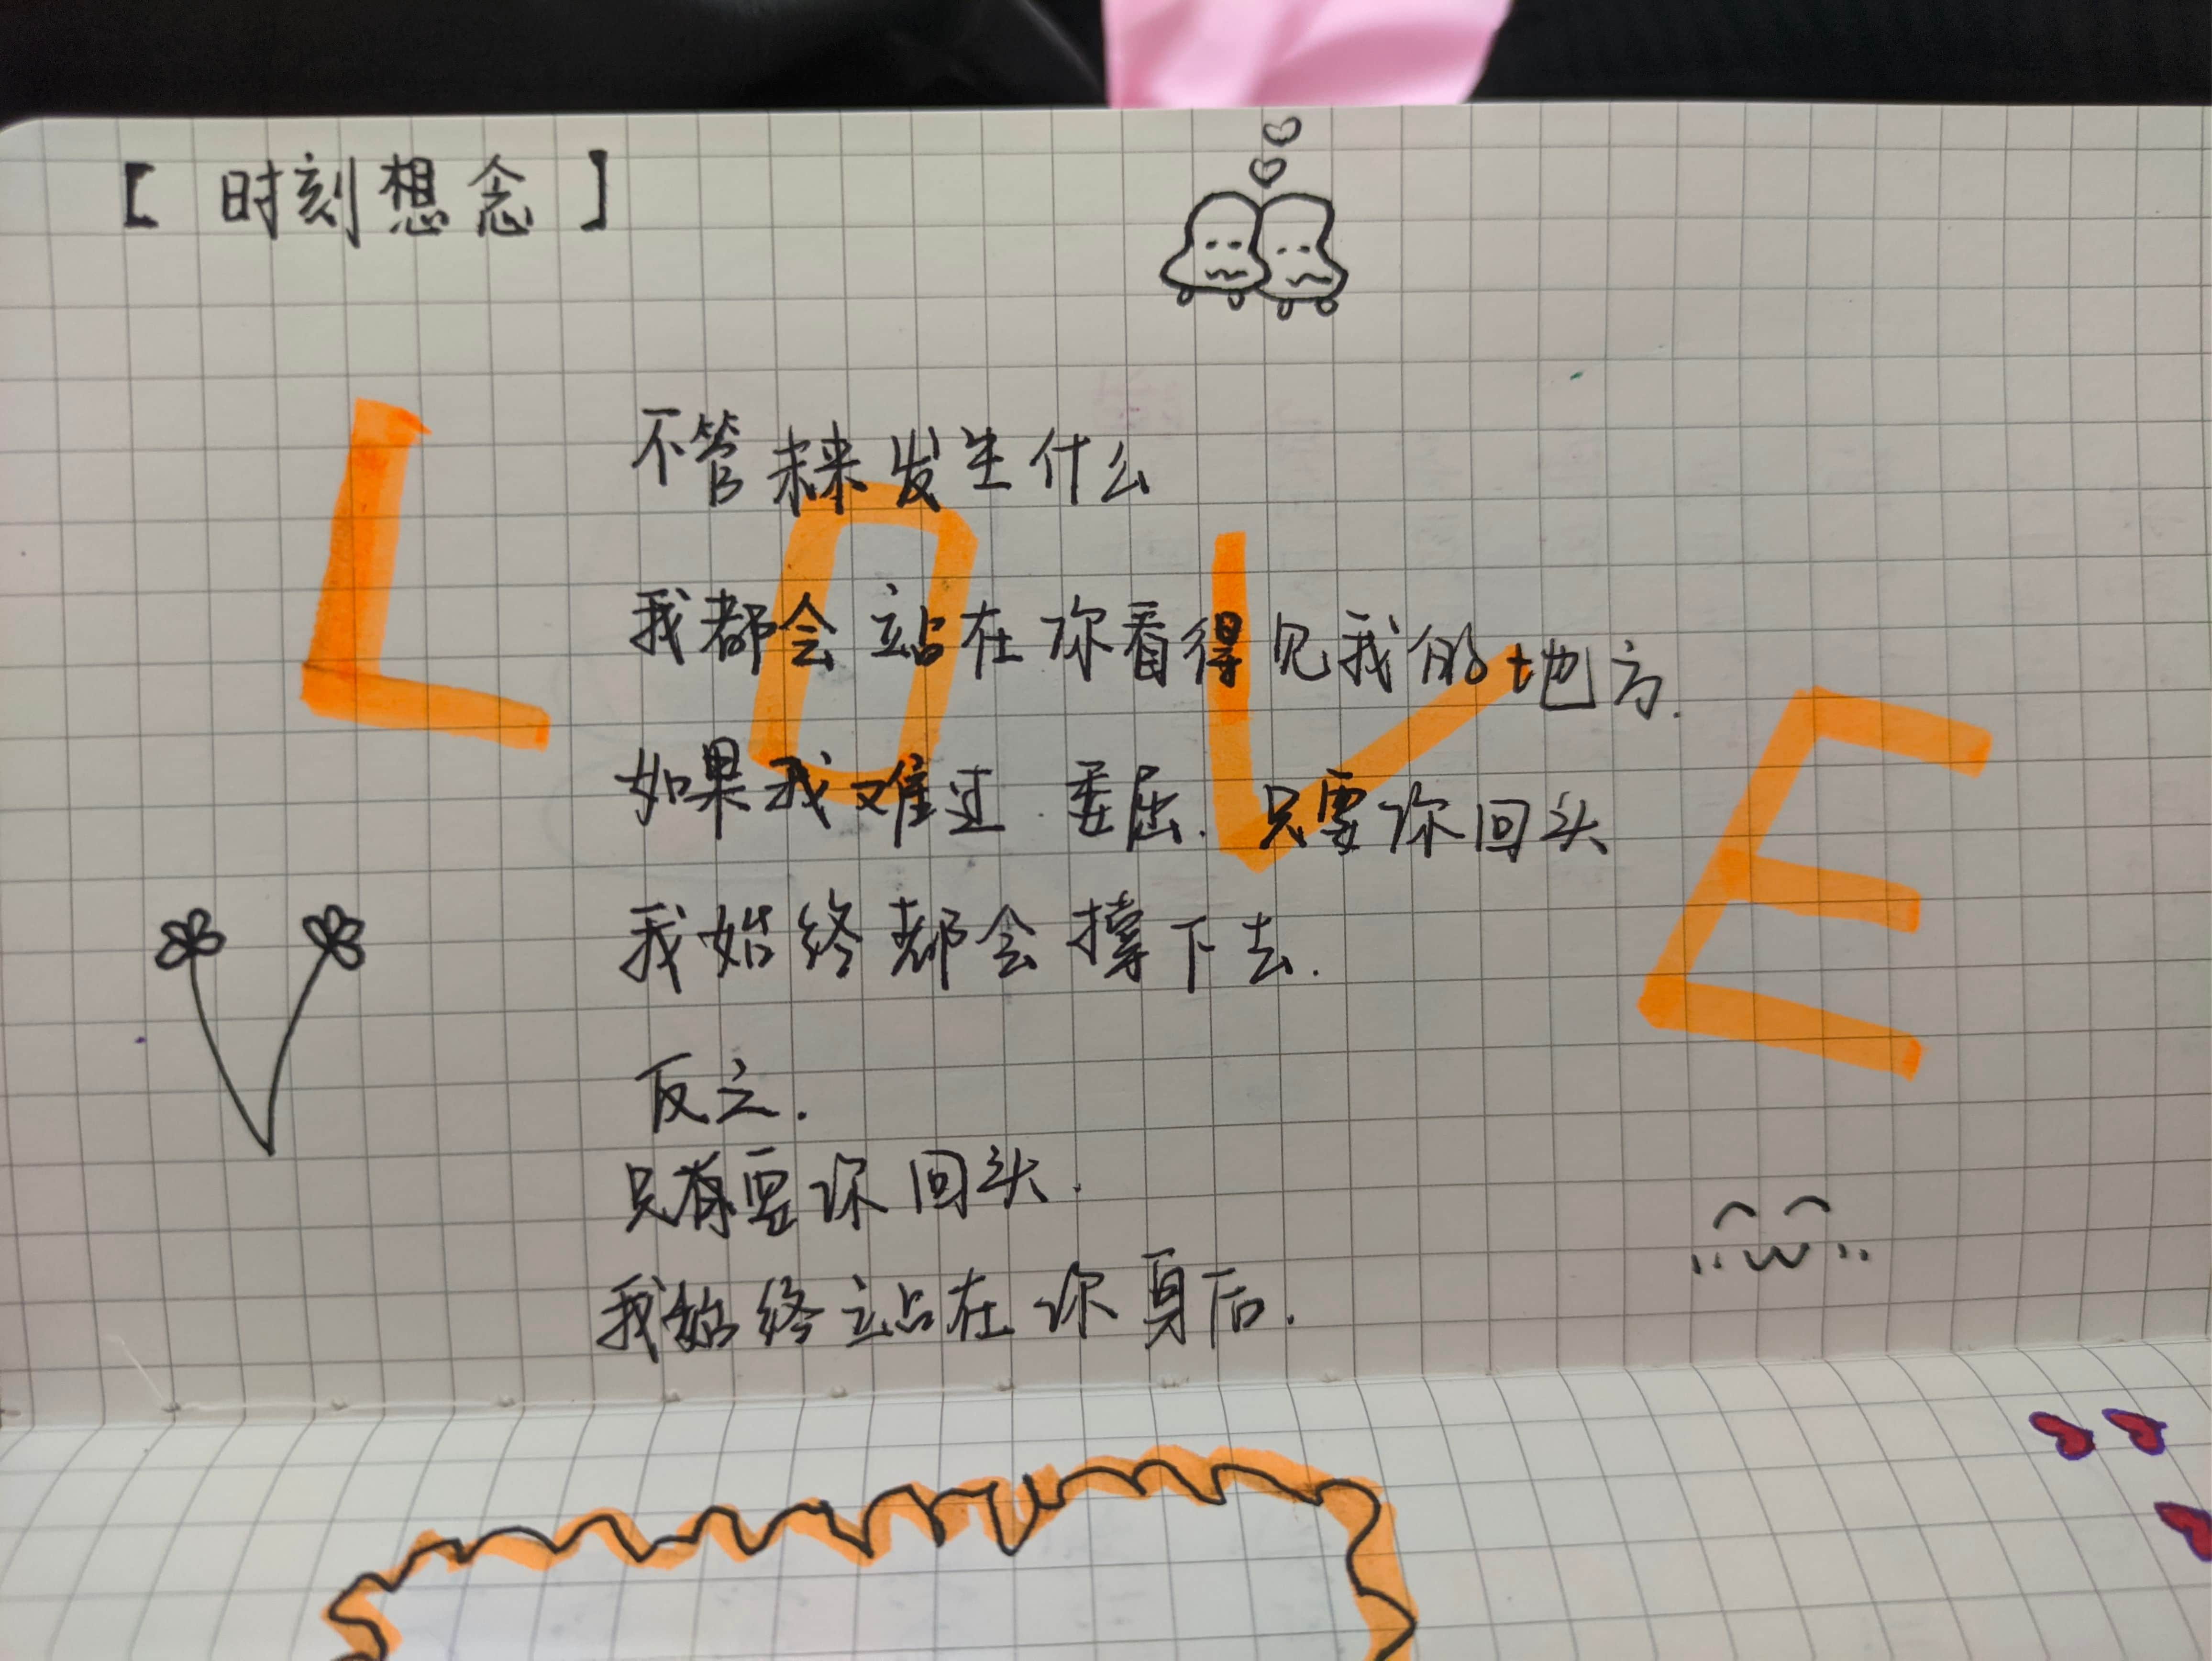 【 时刻想念 】
不管未来发生什么
我都会站在你看得见我的地方.
如果我难过.委屈.只要你回头
我始终都会撑下去.
反之.
只有要你回头.
我始终站在你身后.
LOVE